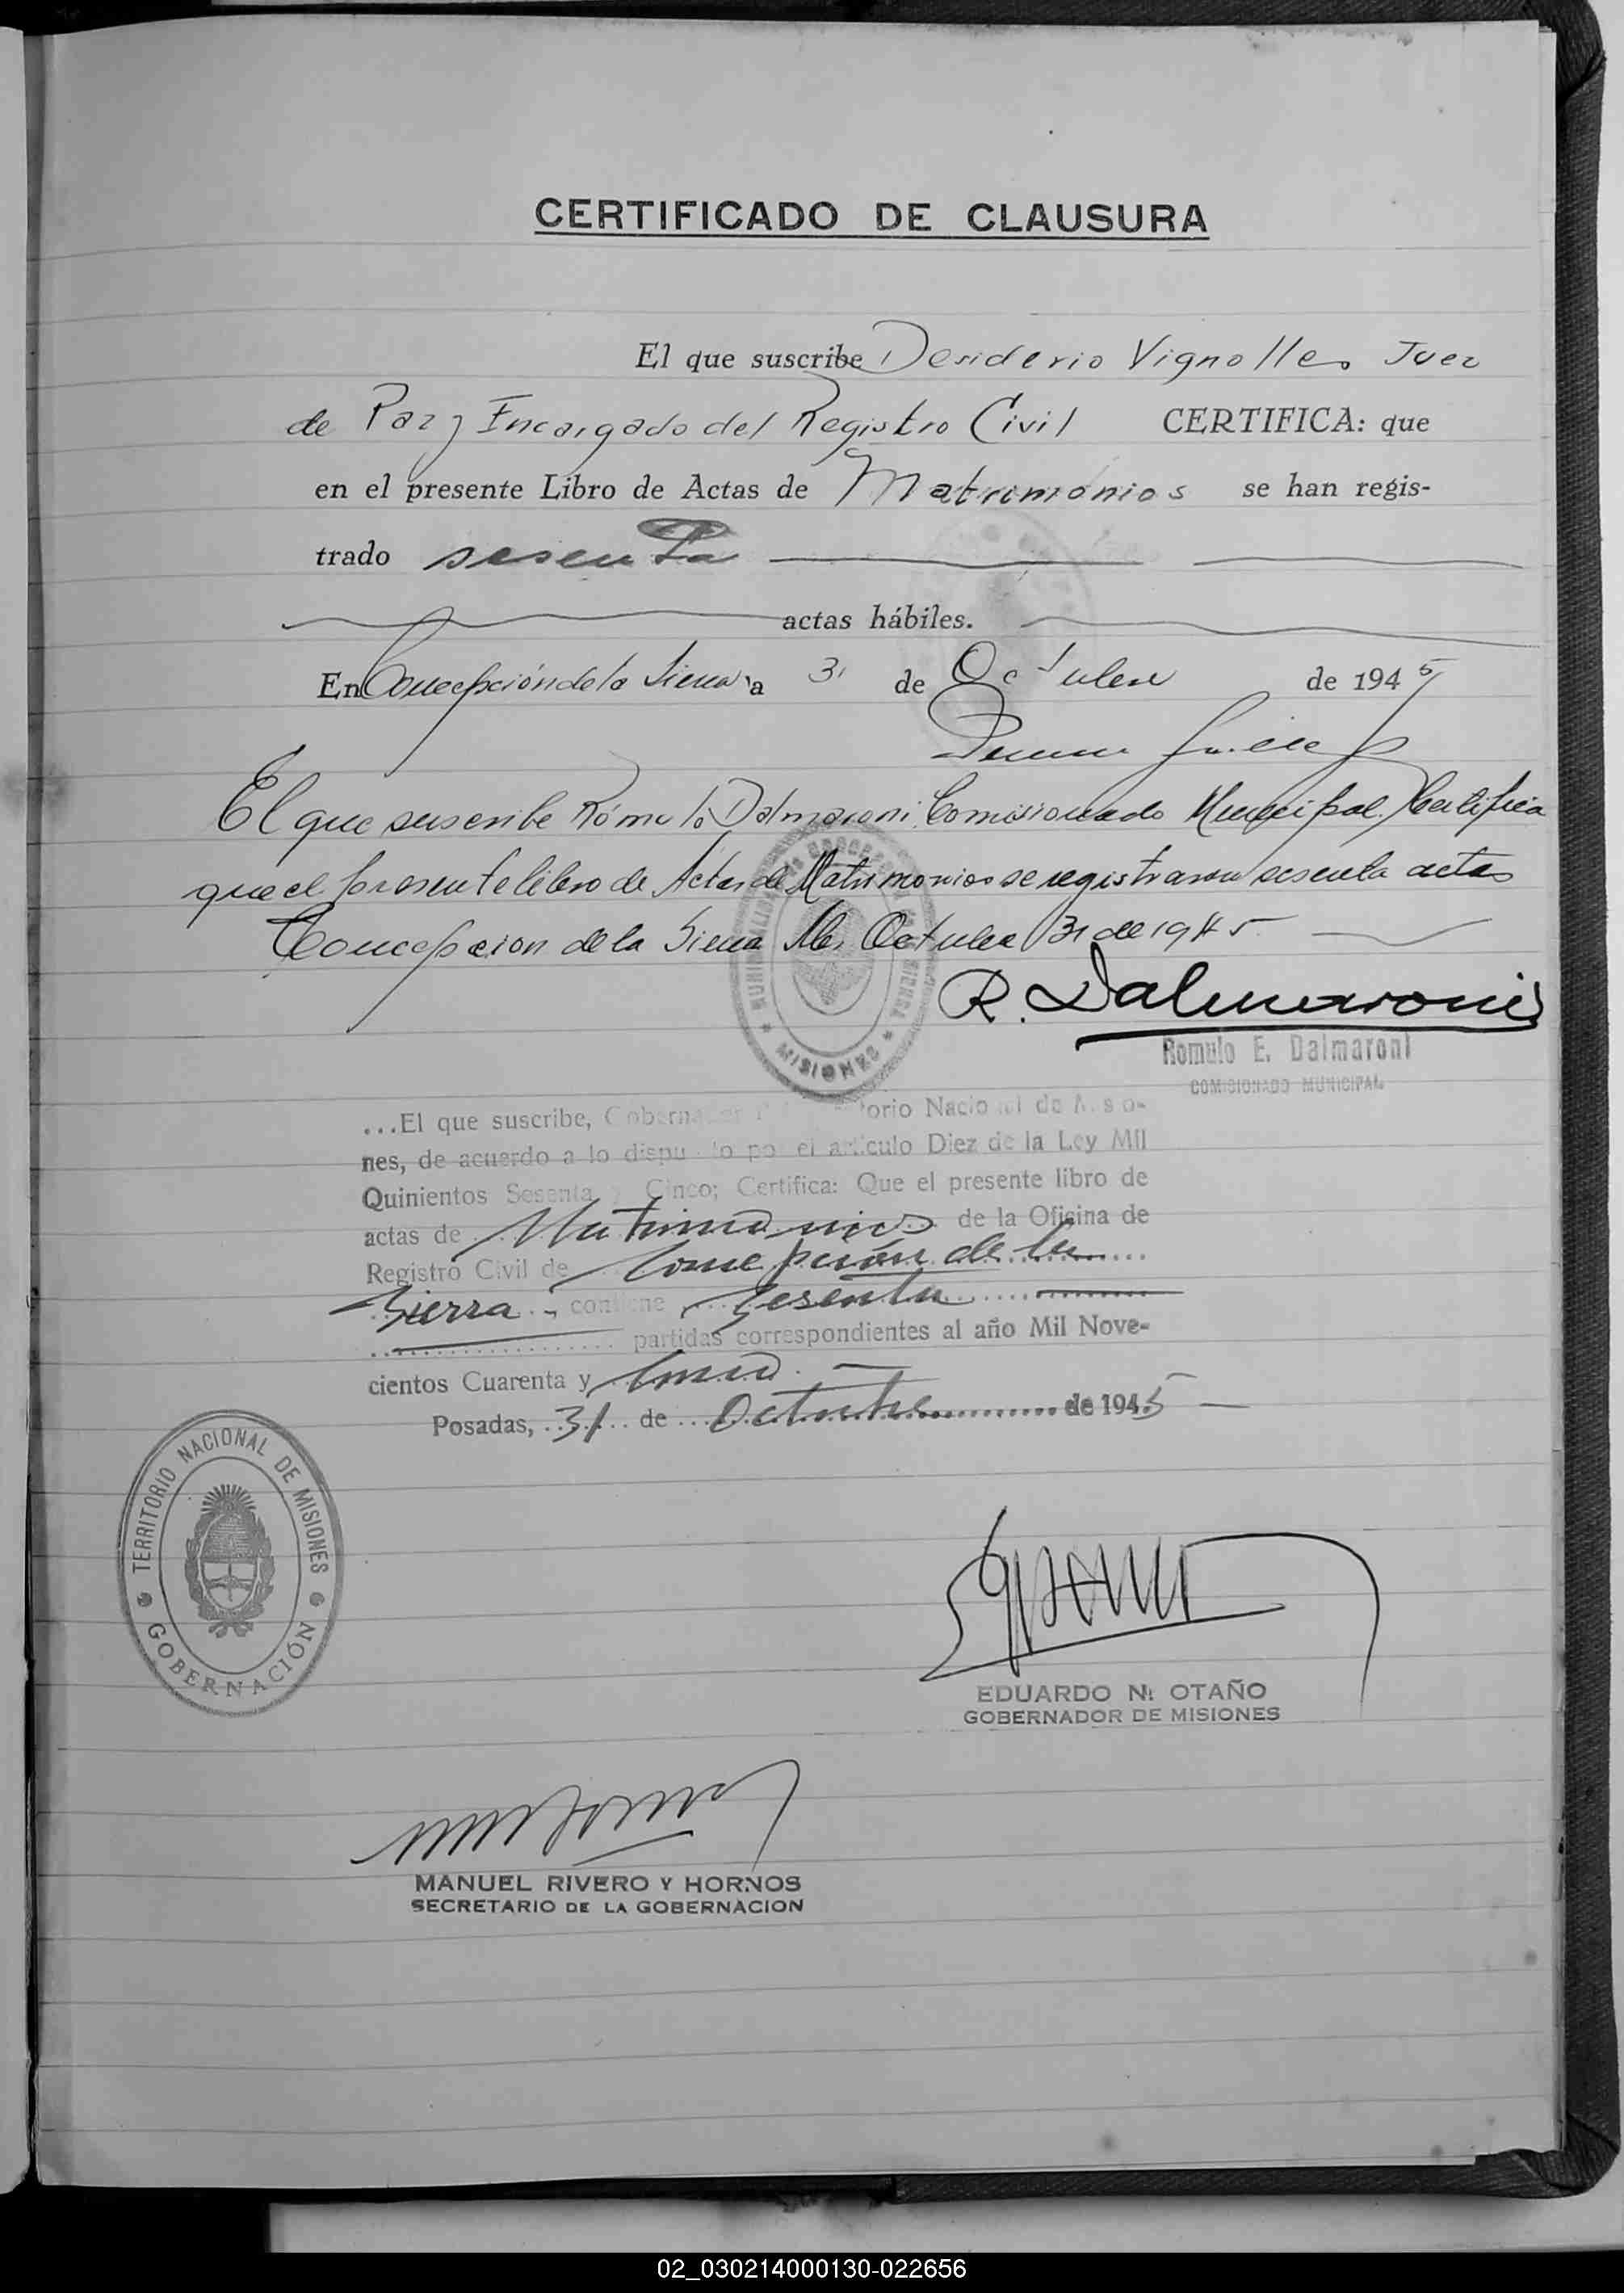 CERTIFICADO DE CLAUSURA
El que suscribe Desiderio Vignolles Juez
de Paz y Encargado del Registro Civil CERTIFICA: que
en el presente Libro de Actas de Matrimonios se han regis-
trado sesenta
actas hábiles.
En Concepción de la Sierra a 31 de Octubre de 1945
El que suscribe Rómulo Dalmaroni Comisionado Municipal Certifica
que el presente libro de Actas de Matrimonios se registraron sesenta actas
Concepcion de la Sierra Octubre 31 de 1945
R. Dalmaroni
Romulo E. Dalmaroni
COMISIONADO MUNICIPAL
MUNICIPALIDAD DE CONCEPCION DE LA SIERRA
MISIONES
...El que suscribe, Gobernador del Territorio Nacional de Misio-
nes, de acuerdo a lo dispuesto por el artículo Diez de la Ley Mil
Quinientos Sesenta y Cinco; Certifica: Que el presente libro de
actas de Matrimonios de la Oficina de
Registro Civil de Concepción de la
Sierra contiene Sesenta
partidas correspondientes al año Mil Nove-
cientos Cuarenta y cinco.
Posadas, 31 de Octubre de 1945
TERRITORIO NACIONAL DE MISIONES
GOBERNACIÓN
EDUARDO N. OTAÑO
GOBERNADOR DE MISIONES
MANUEL RIVERO Y HORNOS
SECRETARIO DE LA GOBERNACION
02_030214000130-022656